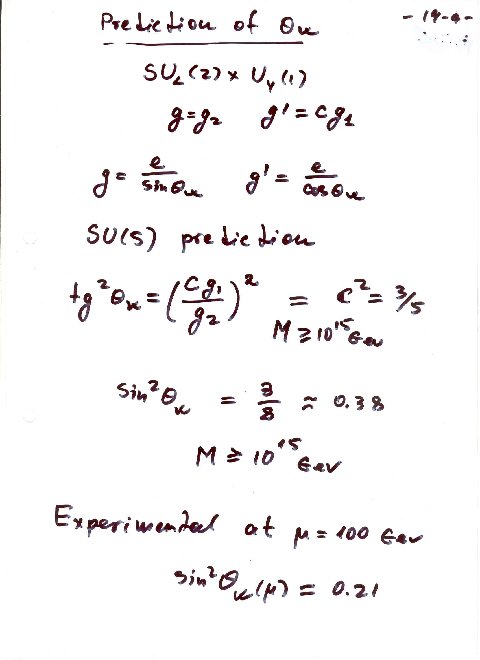 Prediction of θw
- 19-a-
SU_L(2) × U_Y(1)
g = g₂ g' = c g₁
g = e / sin θw g' = e / cos θw
SU(5) prediction
tg²θw = (c g₁ / g₂)² = c² = 3/5
M ≥ 10¹⁵ Gev
sin²θw = 3/8 ≈ 0.38
M ≥ 10¹⁵ Gev
Experimental at μ = 100 Gev
sin²θw(μ) = 0.21